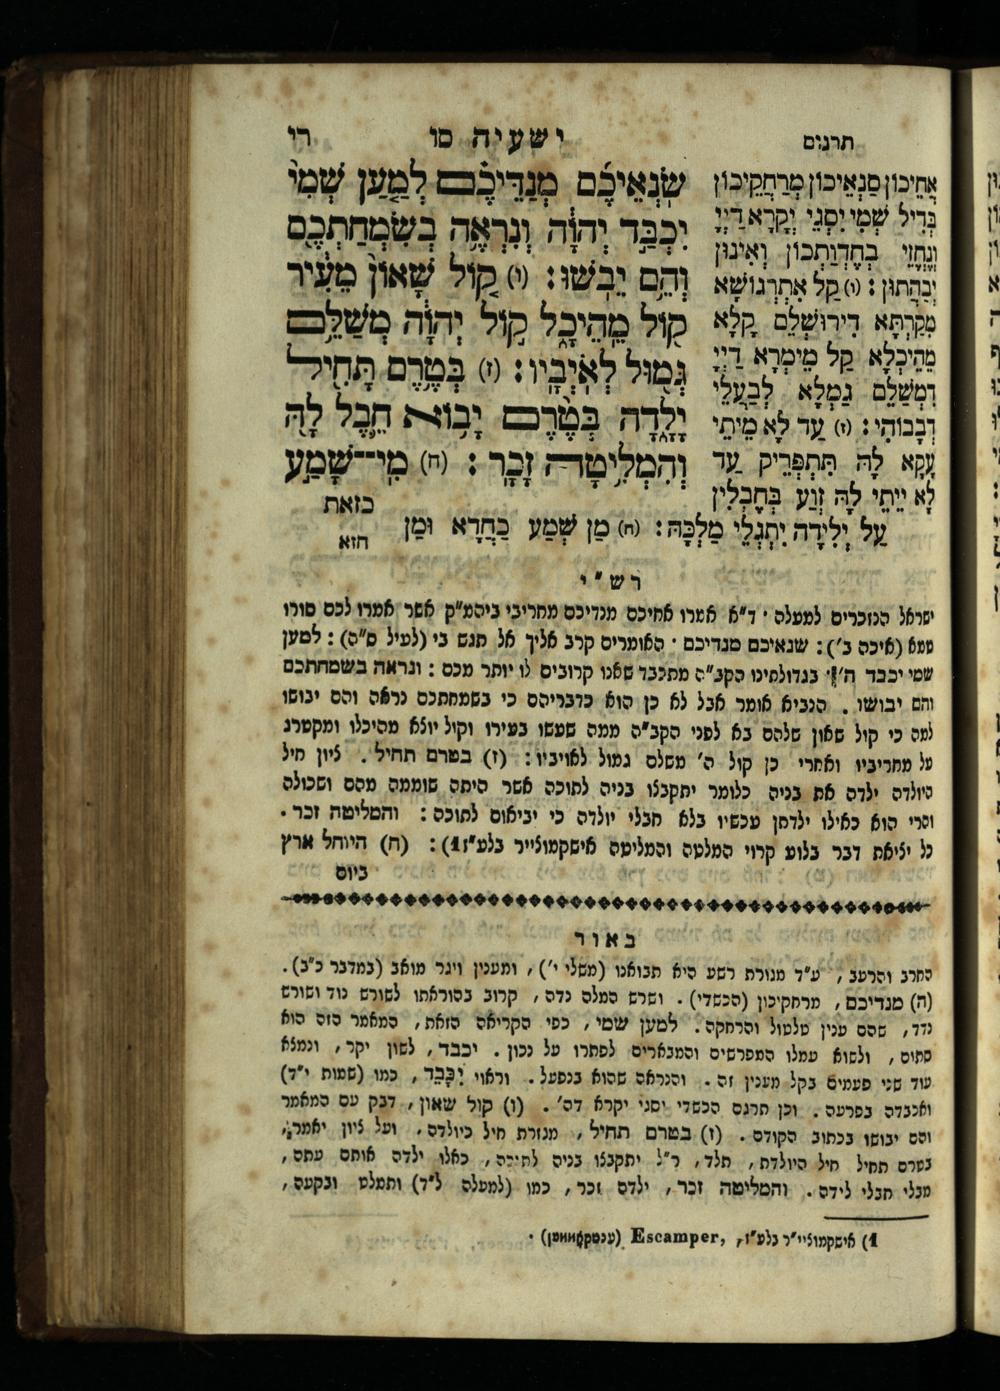 תרגום
ישעיה סו
רי
שֹׂנְאֵיכֶם מְנַדֵּיכֶם לְמַעַן שְׁמִי
יִכְבַּד יְהוָֹה וְנִרְאֶה בְשִׂמְחַתְכֶם
וְהֵם יֵבֹשׁוּ׃ (ו) קוֹל שָׁאוֹן מֵעִיר
קוֹל מֵהֵיכָל קוֹל יְהוָֹה מְשַׁלֵּם
גְּמוּל לְאֹיְבָיו׃ (ז) בְּטֶרֶם תָּחִיל
יָלָדָה בְּטֶרֶם יָבוֹא חֵבֶל לָהּ
וְהִמְלִיטָה זָכָר׃ (ח) מִי־שָׁמַע
כזאת
אֲחֵיכוֹן סַנְאֵיכוֹן מְרַחֲקֵיכוֹן
בְּדִיל שְׁמִי יִסְגֵּי יְקָרָא דַיְיָ
וְנֶחֱזֵי בְּחֶדְוַתְכוֹן וְאִינוּן
יְבַהֲתוּן׃ (ו) קַל אִתְרְגוּשָׁא
מִקַּרְתָּא דִירוּשְׁלֵם קָלָא
מֵהֵיכְלָא קַל מֵימְרָא דַיְיָ
דִמְשַׁלֵּם גְּמָלָא לְבַעֲלֵי
דְבָבוֹהִי׃ (ז) עַד לָא מֵיתֵי
עָקָא לָהּ תִּתְפְּרֵיק עַד
לָא יֵיתֵי לָהּ זְוַע בְּחֶבְלִין
עַל יְלִידָה יִתְגְּלֵי מַלְכָּהּ׃ (ח) מַן שְׁמַע כַּחֲדָא וּמַן
חזא
רש"י
ישראל הנזכרים למעלה · ד"א אמרו אחיכם מנדיכם מחריבי ביהמ"ק אשר אמרו לכם סורו
טמא (איכה ב')׃ שנאיכם מנדיכם · האומרים קרב אליך אל תגש בי (לעיל ס"ה)׃ למען
שמי יכבד ה' · בגדולתינו הקב"ה מתכבד שאנו קרובים לו יותר מכם׃ ונראה בשמחתכם
והם יבושו . הנביא אומר אבל לא כן הוא כדבריהם כי בשמחתכם נראה והם יבושו
למה כי קול שאון שלהם בא לפני הקב"ה ממה שעשו בעירו וקול יוצא מהיכלו ומקטרג
על מחריביו ואחרי כן קול ה' משלם גמול לאויביו׃ (ז) בטרם תחיל . ציון חיל
היולדה ילדה את בניה כלומר יתקבצו בניה לתוכה אשר היתה שוממה מהם ושכולה
והרי הוא כאילו ילדתן עכשיו בלא חבלי יולדה כי יביאום לתוכה׃ והמליטה זכר .
כל יציאת דבר בלוע קרוי המלטה והמליטה אישקמוצייר בלע"ז1)׃ (ח) היוחל ארץ
ביום
באור
החרב והרעב, ע"ד מגורת רשע היא תבואנו (משלי י'), ומענין ויגר מואב (במדבר כ"ב).
(ה) מנדיכם, מרחקיכון (הכשדי). ושרש המלה נדה, קרוב בהוראתו לשורש נוד ושורש
נדד, שהם ענין טלטול והרחקה. למען שמי, כפי הקריאה הזאת, המאמר הזה הוא
סתום, ולשוא עמלו המפרשים והמבארים לפתרו על נכון. יכבד, לשון יקר, ונמצא
עוד שני פעמים בקל מענין זה. והנראה שהוא בנפעל. וראוי יִכָּבֵד, כמו (שמות י"ד)
ואכבדה בפרעה. וכן תרגם הכשדי יסגי יקרא דה'. (ו) קול שאון, דבק עם המאמר
והם יבושו בכתוב הקודם. (ז) בטרם תחיל, מגזרת חיל כיולדה, ועל ציון יאמר,
בטרם תחיל חיל היולדת, תלד, ר"ל יתקבצו בניה לתוכה, כאלו ילדה אותם עתה,
מבלי חבלי לידה. והמליטה זכר, ילדה זכר, כמו (למעלה ל"ד) ותמלט ובקעה,
1) אישקמוצייי"ר בלע"ז, Escamper, (ענטקאממען) .